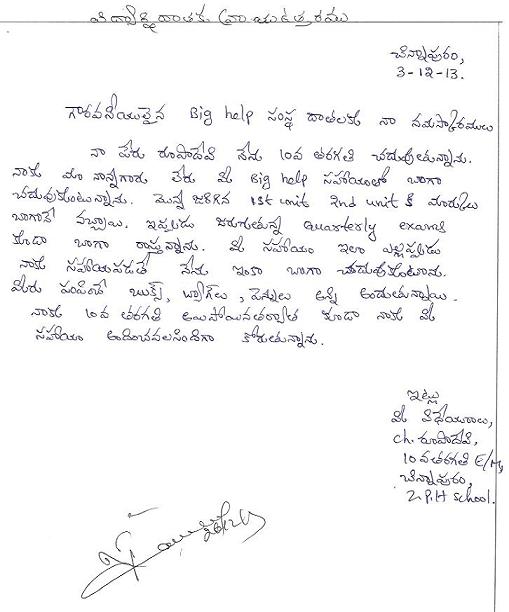 విద్యార్థి దాతకు వ్రాయు ఉత్తరము
చిన్నాపురం,
3-12-13.
గౌరవనీయులైన Big help సంస్థ దాతలకు నా నమస్కారములు
నా పేరు రూపాదేవి నేను 10వ తరగతి చదువుతున్నాను.
నాకు మా నాన్నగారు లేరు మీ Big help సహాయంతో బాగా
చదువుకుంటున్నాను. మొన్న జరిగిన 1st unit 2nd unit కి మార్కులు
బాగానే వచ్చాయి. ఇప్పుడు జరుగుతున్న Quarterly exams
కూడా బాగా రాస్తున్నాను. మీ సహాయం ఇలా ఎల్లప్పుడు
నాకు సహాయపడితే నేను ఇంకా బాగా చదువుకుంటాను.
మీరు పంపించే బుక్స్, బ్యాగ్‌లు, పెన్నులు అన్ని అందుతున్నాయి.
నాకు 10వ తరగతి అయిపోయినతర్వాత కూడా నాకు మీ
సహాయం అందించవలసిందిగా కోరుతున్నాను.
ఇట్లు
మీ విధేయురాలు,
ch. రూపాదేవి,
10 వతరగతి E/M,
చిన్నాపురం,
Z.P.H school.